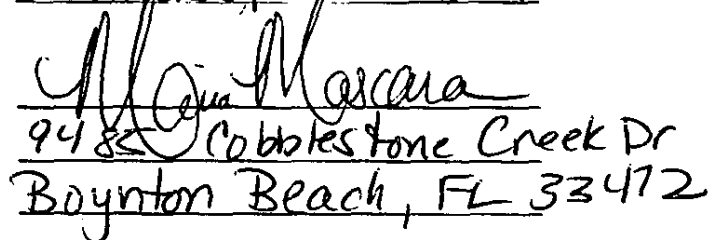 Mascara
9485 Cobblestone Creek Dr
Boynton Beach, FL 33472